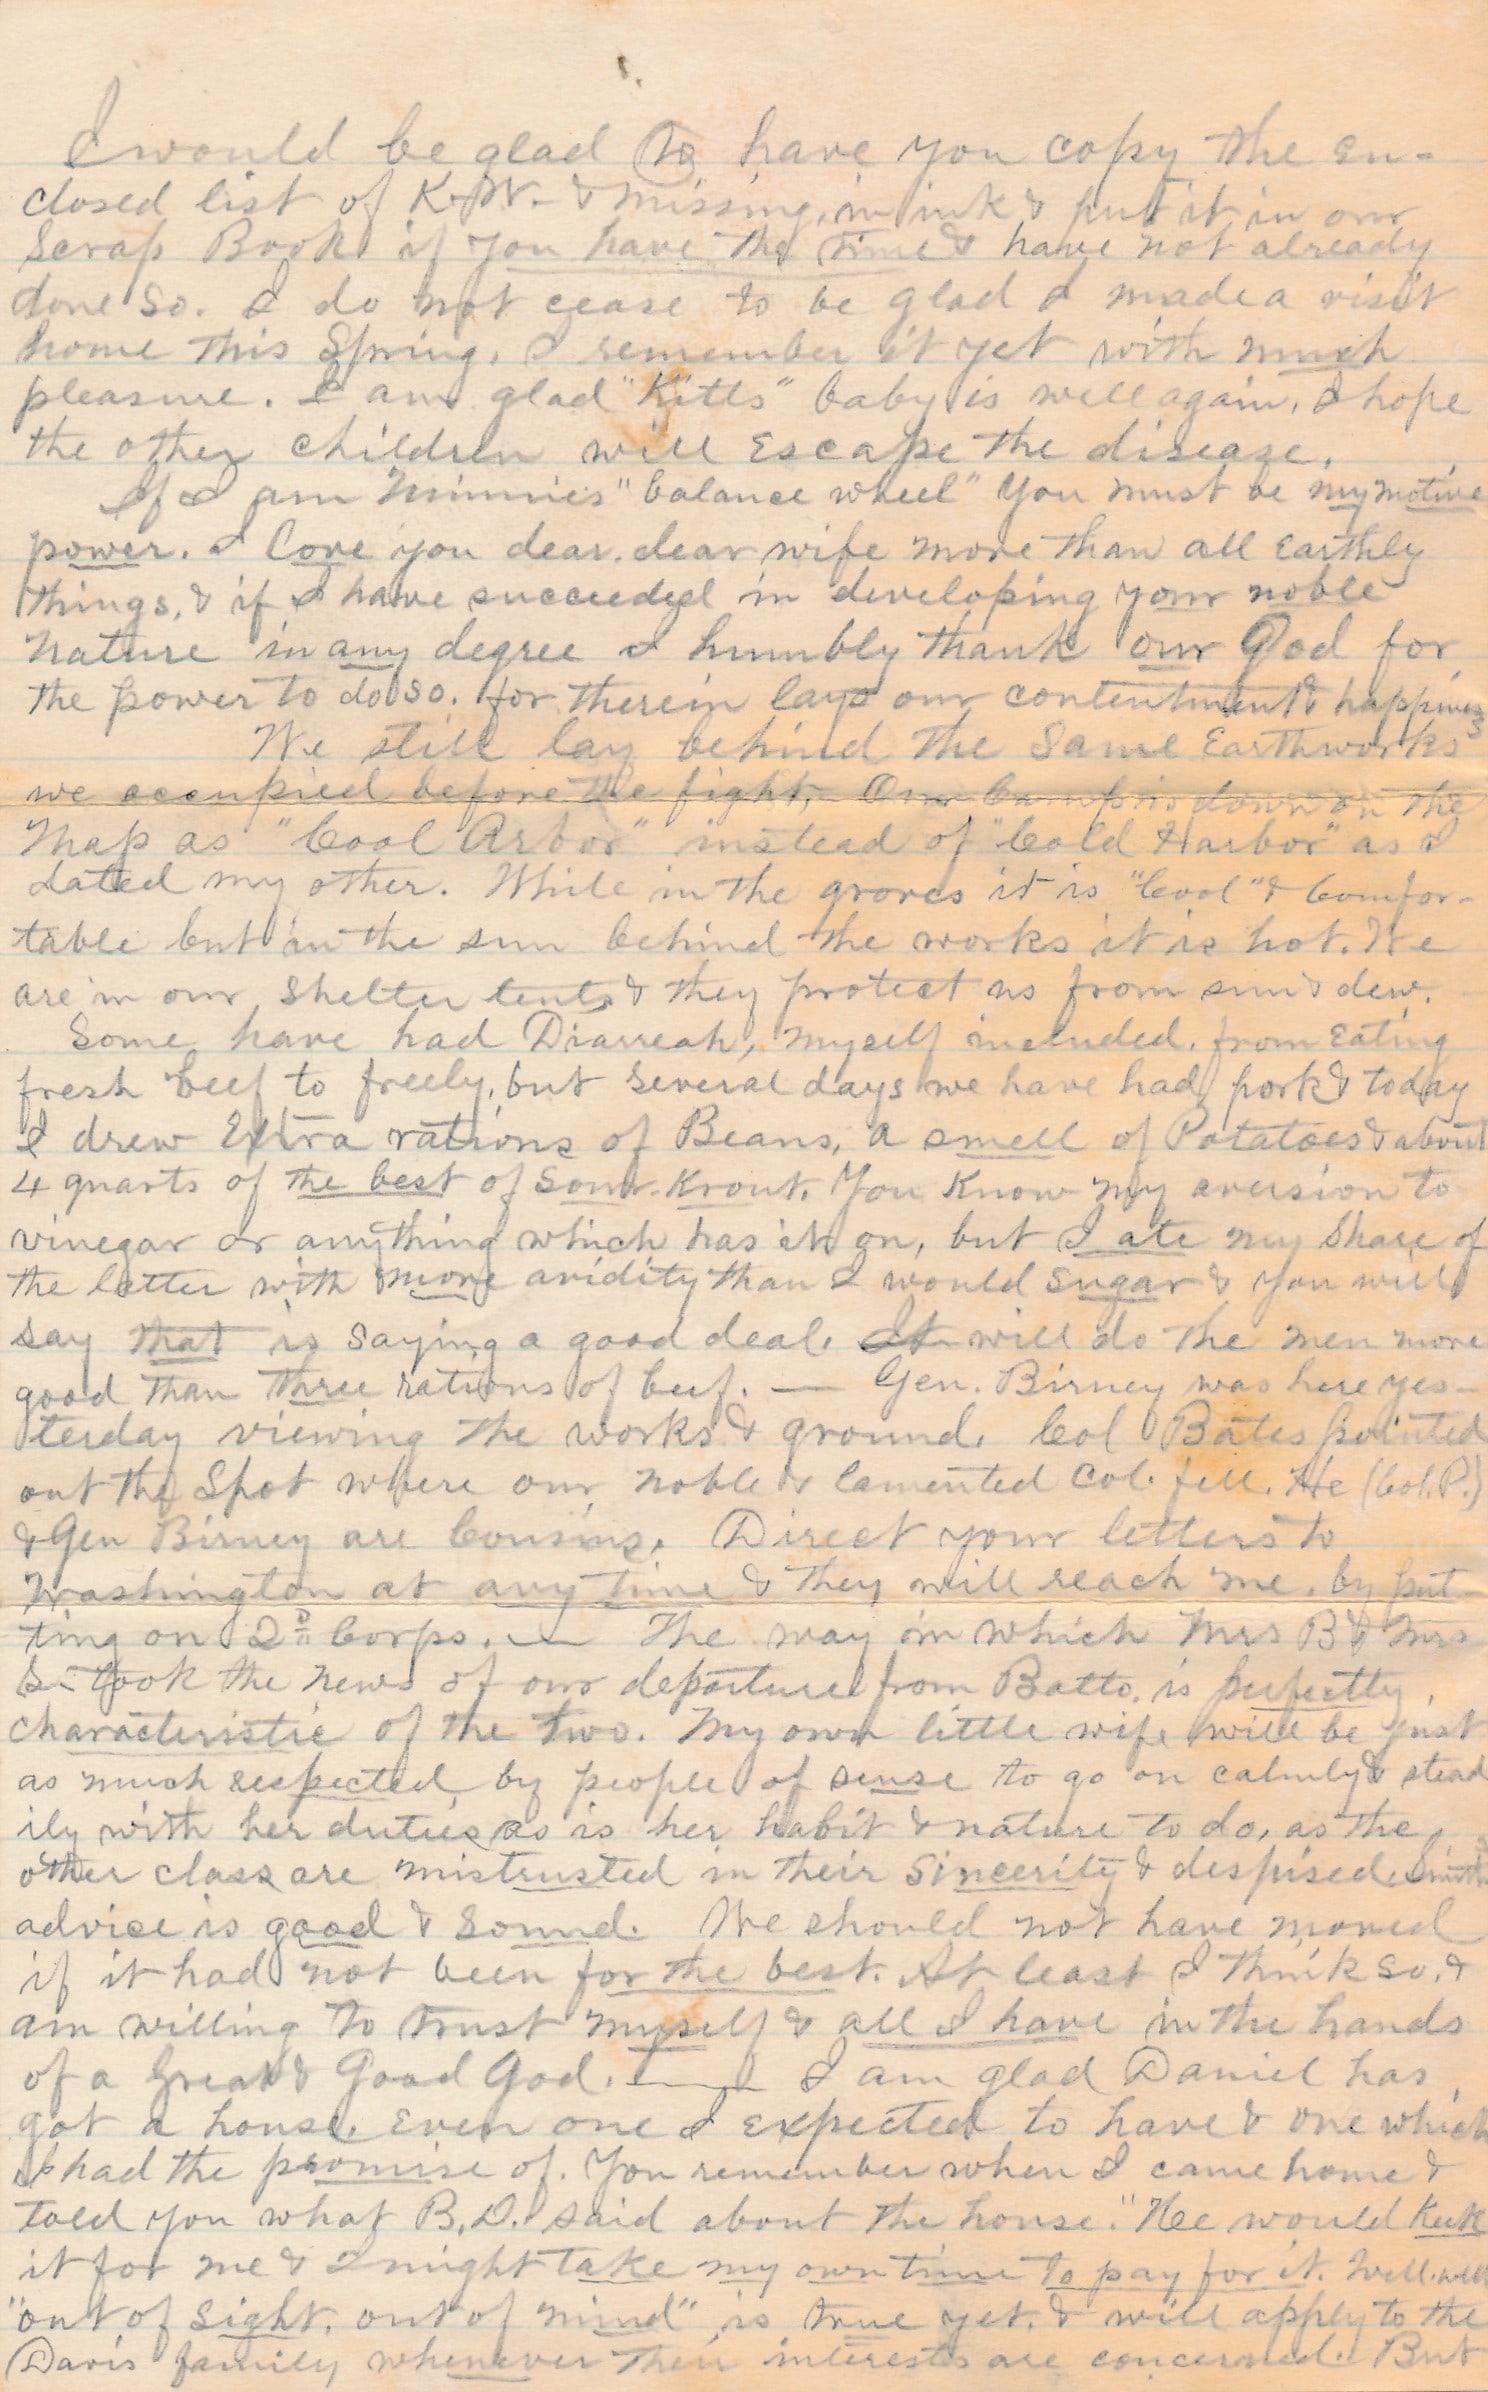 I would be glad to have you copy the en-
closed list of K. W. & missing, in ink & put it in our
Scrap Book if you have the time & have not already
done so. I do not cease to be glad I made a visit
home this Spring. I remember it yet with much
pleasure. I am glad "Kitts" baby is well again. I hope
the other children will Escape the disease.
If I am Minnies "balance wheel" You must be my motive
power. I Love you dear, dear wife more than all Earthly
things, & if I have succeeded in developing your noble
Nature in any degree I humbly thank our God for
the power to do so, for therein lays our contentment & happiness
We still lay behind the Same Earthworks
we occupied before the fight, Our Camp is down on the
Map as "Cool Arbor" instead of "Cold Harbor" as I
dated my other. While in the groves it is "Cool" & Comfor-
table but in the sun behind the works it is hot. We
are in our Shelter tents & they protect us from sun & dew.
Some have had Diarreah, myself included, from Eating
fresh beef to freely, but Several days we have had pork & today
I drew Extra rations of Beans, a smell of Potatoes & about
4 quarts of the best of Sour-Krout. You Know my aversion to
vinegar or anything which has it on, but I ate my Share of
the latter with more avidity than I would Sugar & you will
say that is Saying a good deal. It will do the men more
good than three rations of beef. — Gen. Birney was here yes-
terday viewing the works & ground. Col Bates pointed
out the Spot where our noble & lamented Col. fell. He (Col. P.)
& Gen Birney are Cousins. Direct your letters to
Washington at any time & they will reach me, by put-
ting on 2D Corps. — The way in which Mrs B & Mrs
S- took the news of our departure from Balto. is perfectly
characteristic of the two. My own little wife will be just
as much respected by people of sense to go on calmly & stead
ily with her duties as is her habit & nature to do, as the
other class are mistrusted in their Sincerity & despised. Smiths
advice is good & Sound. We should not have moved
if it had not been for the best. At least I think so, &
am willing to trust myself & all I have in the hands
of a Great & Good God. — I am glad Daniel has
got a house. Even one I expected to have & one which
I had the promise of. You remember when I came home &
told you what B. D. said about the house. "Hee would Keek
it for me & I might take my own time to pay for it. Well. well
"out of Sight, out of mind" is true yet, & will apply to the
Davis family whenever their interests are concerned. But